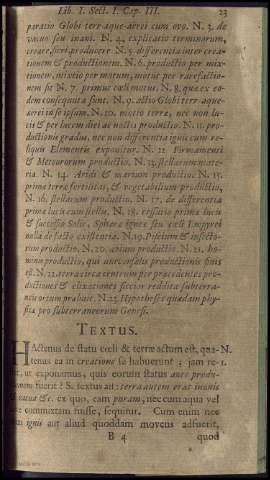 Lib. I. Sect. I. Cap. III. 23
paratio Globi terr-aque-aërei cum ovo. N. 3. de
vacuo seu inani. N. 4. explicatio terminorum,
creare, fieri, producere N. 5. differentia inter crea-
tionem & productionem. N. 6. productio per mix-
tionem, mixtio per motum, motus per rarefactio-
nem fit N. 7. primus cœli motus. N. 8. quæ ex eo-
dem consequuta sunt. N. 9. actio Globi terr-aque-
aërei in ipsum. N. 10. motus terræ, nec non lu-
cis & per lucem diei ac noctis productio. N. 11. pro-
ductionis gradus, nec non differentia ignis cum re-
liquis Elementis exponitur. N. 12. Firmamenti
& Meteororum productio. N. 13. stellarum mate-
ria. N. 14. Aridi & marium productio. N. 15.
prima terræ fertilitas, & vegetabilium productio,
N. 16. stellarum productio. N. 17. de differentia
primæ lucis cum stellis. N. 18. cessatio primæ lucis
& successio Solis, Sphæræ igneæ seu cœli Empyrei
nulla de facto existentia. N. 19. Piscium & insecto-
rum productio. N. 20. avium productio. N. 21. ho-
minis productio, qui universalis productionis finis
est. N. 22. terra circa centrum per præcedentes pro-
ductiones & elixationes siccior reddita subterra-
neis ortum præbuit. N. 23. Hypotheses quædam phy-
sicæ pro subterraneorum Genesi.
TEXTUS.
HActenus de statu cœli & terræ actum est, qua- N.
tenus ea in creatione se habuerunt; jam re- 1.
stat, ut exponamus, quis eorum status ante produ-
ctionem fuerit? S. textus ait: terra autem erat inanis
& vacua &c. ex quo, eam puram, nec cum aqua vel
commixtam fuisse, sequitur. Cum enim nec
ignis aut aliud quoddam movens adfuerit,
B 4 quod